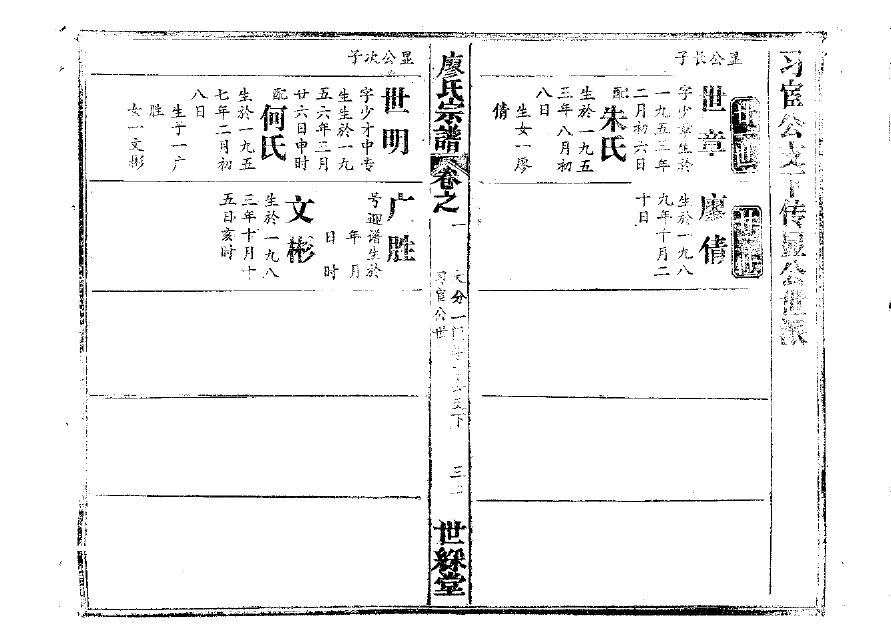 习宦公支下传显公世派
显公长子
世章
字少章生於
一九五三年
二月初六日
配
朱氏
生於一九五
三年八月初
八日
生女一廖
倩
廖倩
生於一九八
九年十月二
十日
廖氏宗譜
卷之一
习宦公世
世綵堂
显公次子
世明
字少才中专
生生於一九
五六年三月
廿六日申时
配
何氏
生於一九五
七年二月初
八日
生子一广
胜
女一文彬
广胜
号迎谱生於
年 月
日 时
文彬
生於一九八
三年十月十
五日亥时